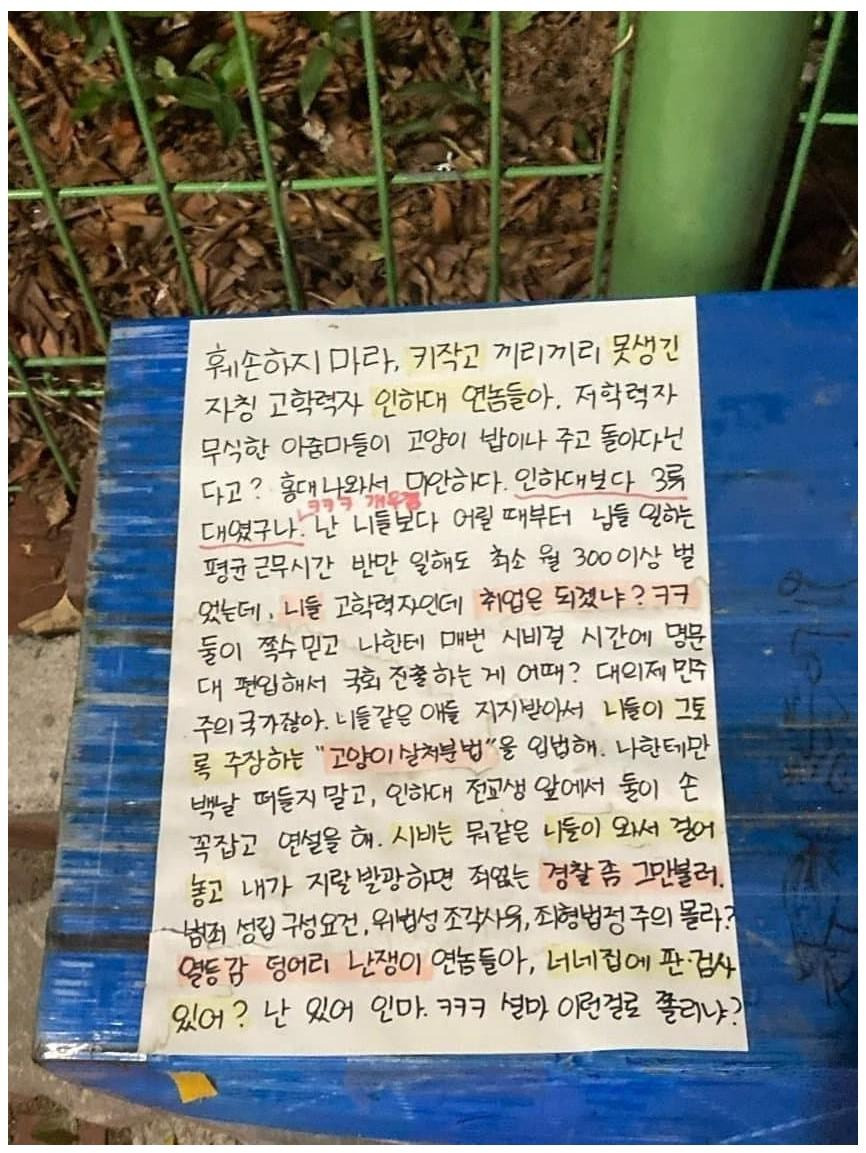 훼손하지 마라, 키작고 끼리끼리 못생긴
자칭 고학력자 인하대 연놈들아. 저학력자
무식한 아줌마들이 고양이 밥이나 주고 돌아다닌
다고? 홍대 나와서 미안하다. 인하대보다 3류
ㅋㅋㅋ 개웃겸
대였구나. 난 니들보다 어릴 때부터 니들 일하는
평균 근무시간 반만 일해도 최소 월 300이상 벌
었는데, 니들 고학력자인데 취업은 되겠냐? ㅋㅋ
둘이 쪽수 믿고 나한테 매번 시비걸 시간에 명문
대 편입해서 국회 진출하는 게 어때? 대의제 민주
주의 국가잖아. 니들같은 애들 지지받아서 니들이 그토
록 주장하는 "고양이 살처분법"을 입법해. 나한테만
백날 떠들지 말고, 인하대 전교생 앞에서 둘이 손
꼭잡고 연설을 해. 시비는 뭐같은 니들이 와서 걸어
놓고 내가 지랄발광하면 죄없는 경찰 좀 그만불러.
범죄 성립 구성요건, 위법성 조각사유, 죄형법정주의 몰라?
열등감 덩어리 난쟁이 연놈들아, 너네집에 판·검사
있어? 난 있어 인마. ㅋㅋㅋ 설마 이런걸로 쫄리냐?